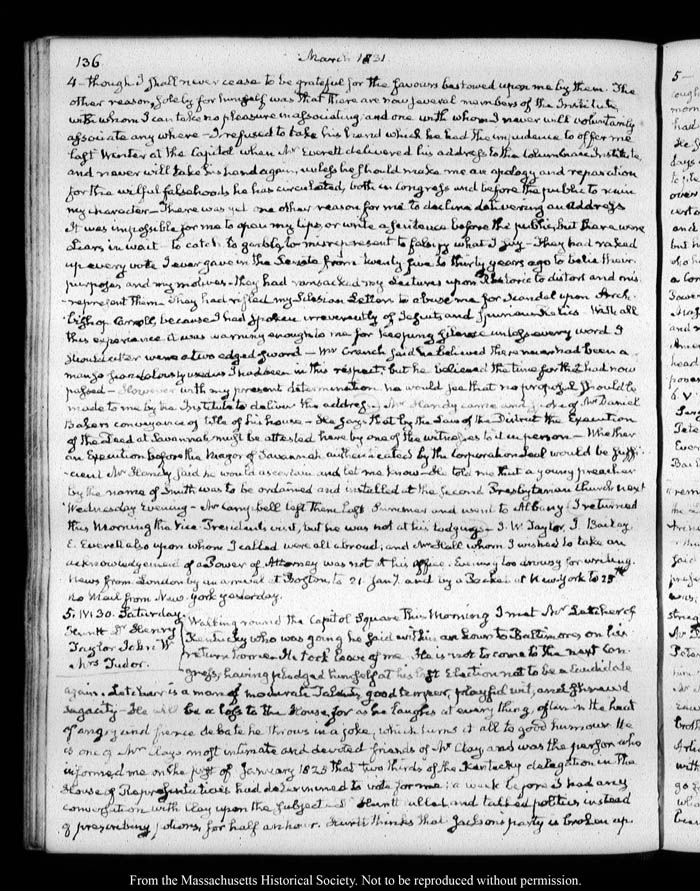 136
March 1831
4 – though I shall never cease to be grateful for the favours bestowed upon me by them. The
other reason, solely for himself was that there are now several members of the Institute
with whom I can take no pleasure in associating and one with whom I never will voluntarily
associate any where – I refused to take his hand which he had the impudence to offer me
last Winter at the Capitol when Mr Everett delivered his address to the Columbian Institute,
and never will take his hand again, unless he should make me an apology and reparation
for the wilful falsehoods he has circulated, both in Congress and before the public to ruin
my character – There was yet one other reason for me to decline delivering an Address
It was impossible for me to open my lips, or write a sentence before the public, but there were
Liars in wait to catch to garble, to misrepresent to falsify what I say – They had raked
up every vote I ever gave in the Senate from twenty five to thirty years ago to belie their
purposes and my motives – they had ransacked my Lectures upon Rhetoric to distort and mis
-represent them – They had rifled my Silesian Letters to abuse me for scandal upon Arch-
bishop Carroll, because I had spoken irreverently of Jesuits and spurious relics – With all
this experience it was warning enough to me for keeping silence unless every word I
should utter were a two edged sword – Mr Cranch said he believed there never had been a
man so scandalously used as I had been in this respect, but he believed the time for that had now
passed – However with my present determination he would see that no proposal should be
made to me by the Institute to deliver the address – Mr Handy came and spoke of Mr Daniel
Baker's conveyance of title of his house – He says that by the Laws of the District the Execution
of the Deed at Savannah must be attested here by one of the witnesses to it in person – Whether
an Execution before the Mayor of Savannah authenticated by the Corporation Seal would be suffi-
-cient Mr Handy said he would ascertain and let me know – He told me that a young preacher
by the name of Smith was to be ordained and installed at the second Presbyterian Church next
Wednesday Evening – Mr Campbell left them last Summer and went to Albany. I returned
this Morning the Vice President's visit, but he was not at his lodgings – J. W. Taylor, J. Bailey
E. Everett also upon whom I called were all abroad; and Mr Hall whom I wished to take an
acknowledgement of a Power of Attorney was not at his office. Evening too drowsy for writing.
News from London by an arrival at Boston, to 21. Jany and by a Packet at New York to 25th
No Mail from New York yesterday.
5. IV: 30. Saturday
Huntt Dr Henry
Taylor John W.
Mrs Tudor.
Walking round the Capitol Square this Morning I met Mr Letcher of
Kentucky who was going he said within an hour to Baltimore, on his
return home – He took leave of me. He is not to come to the next Con-
gress, having pledged himself at his last Election not to be a Candidate
again. Letcher is a man of moderate Talents, good temper, playful wit, and shrewd
sagacity – He will be a loss to the House, for as he laughs at every thing, often in the heat
of angry and fierce debate he throws in a joke, which turns it all to good humour. He
is one of Mr Clay's most intimate and devoted friends of Mr Clay, and was the person who
informed me on the first of January 1825 that two thirds of the Kentucky delegation in the
House of Representatives had determined to vote for me; a week before I had any
conversation with Clay upon the subject – Dr Huntt called and talked politics instead
of prescribing potions, for half an hour. Huntt thinks that Jackson's party is broken up.
From the Massachusetts Historical Society. Not to be reproduced without permission.